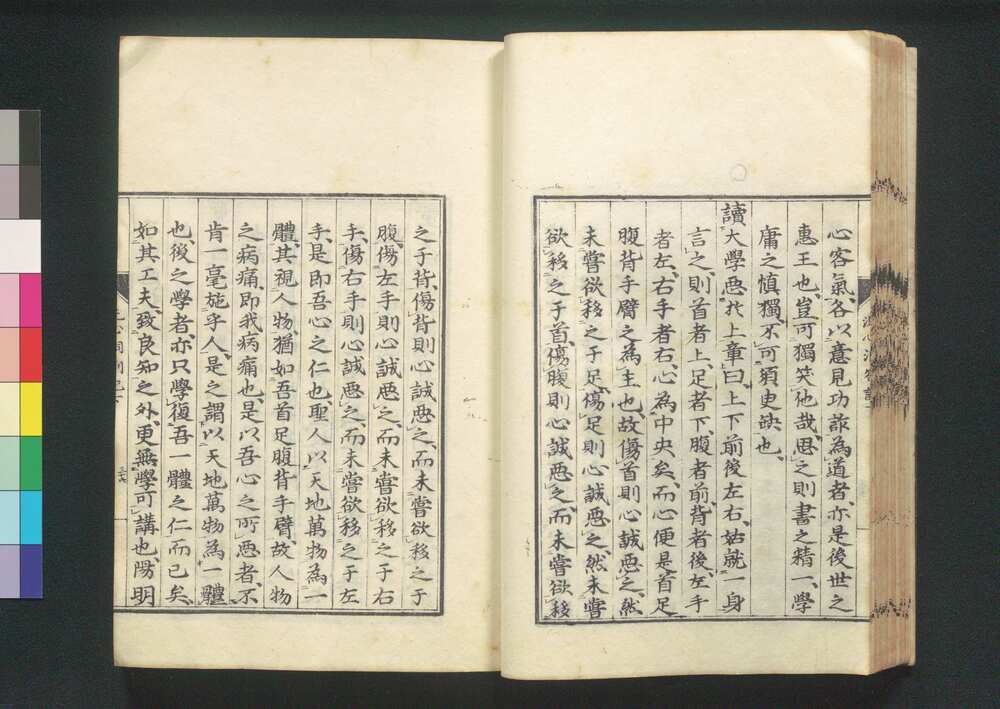 心客氣各以意見功詐為道者亦是後世之
惠王也豈可獨笑他哉思之則書之精一學
庸之慎獨不可須史缺也
讀大學惡於上章曰上下前後左右姑就一身
言之則首者上足者下腹者前背者後左手
者左右手者右心為中央矣而心便是首足
腹背手臂之為主也故傷首則心誠惡之然
未嘗欲移之于足傷足則心誠惡之然未嘗
欲移之于首傷腹則心誠惡之而未嘗欲移
之于背傷背則心誠惡之而未嘗欲移之于
腹傷左手則心誠惡之而未嘗欲移之于右
手傷右手則心誠惡之而未嘗欲移之于左
手是即吾心之仁也聖人以天地萬物為一
體其視人物猶如吾首足腹背手臂故人物
之病痛即我病痛也是以吾心之所惡者不
肯一毫施乎人是之謂以天地萬物為一體
也後之學者亦只學復吾一體之仁而已矣
如其工夫致良知之外更無學可講也陽明